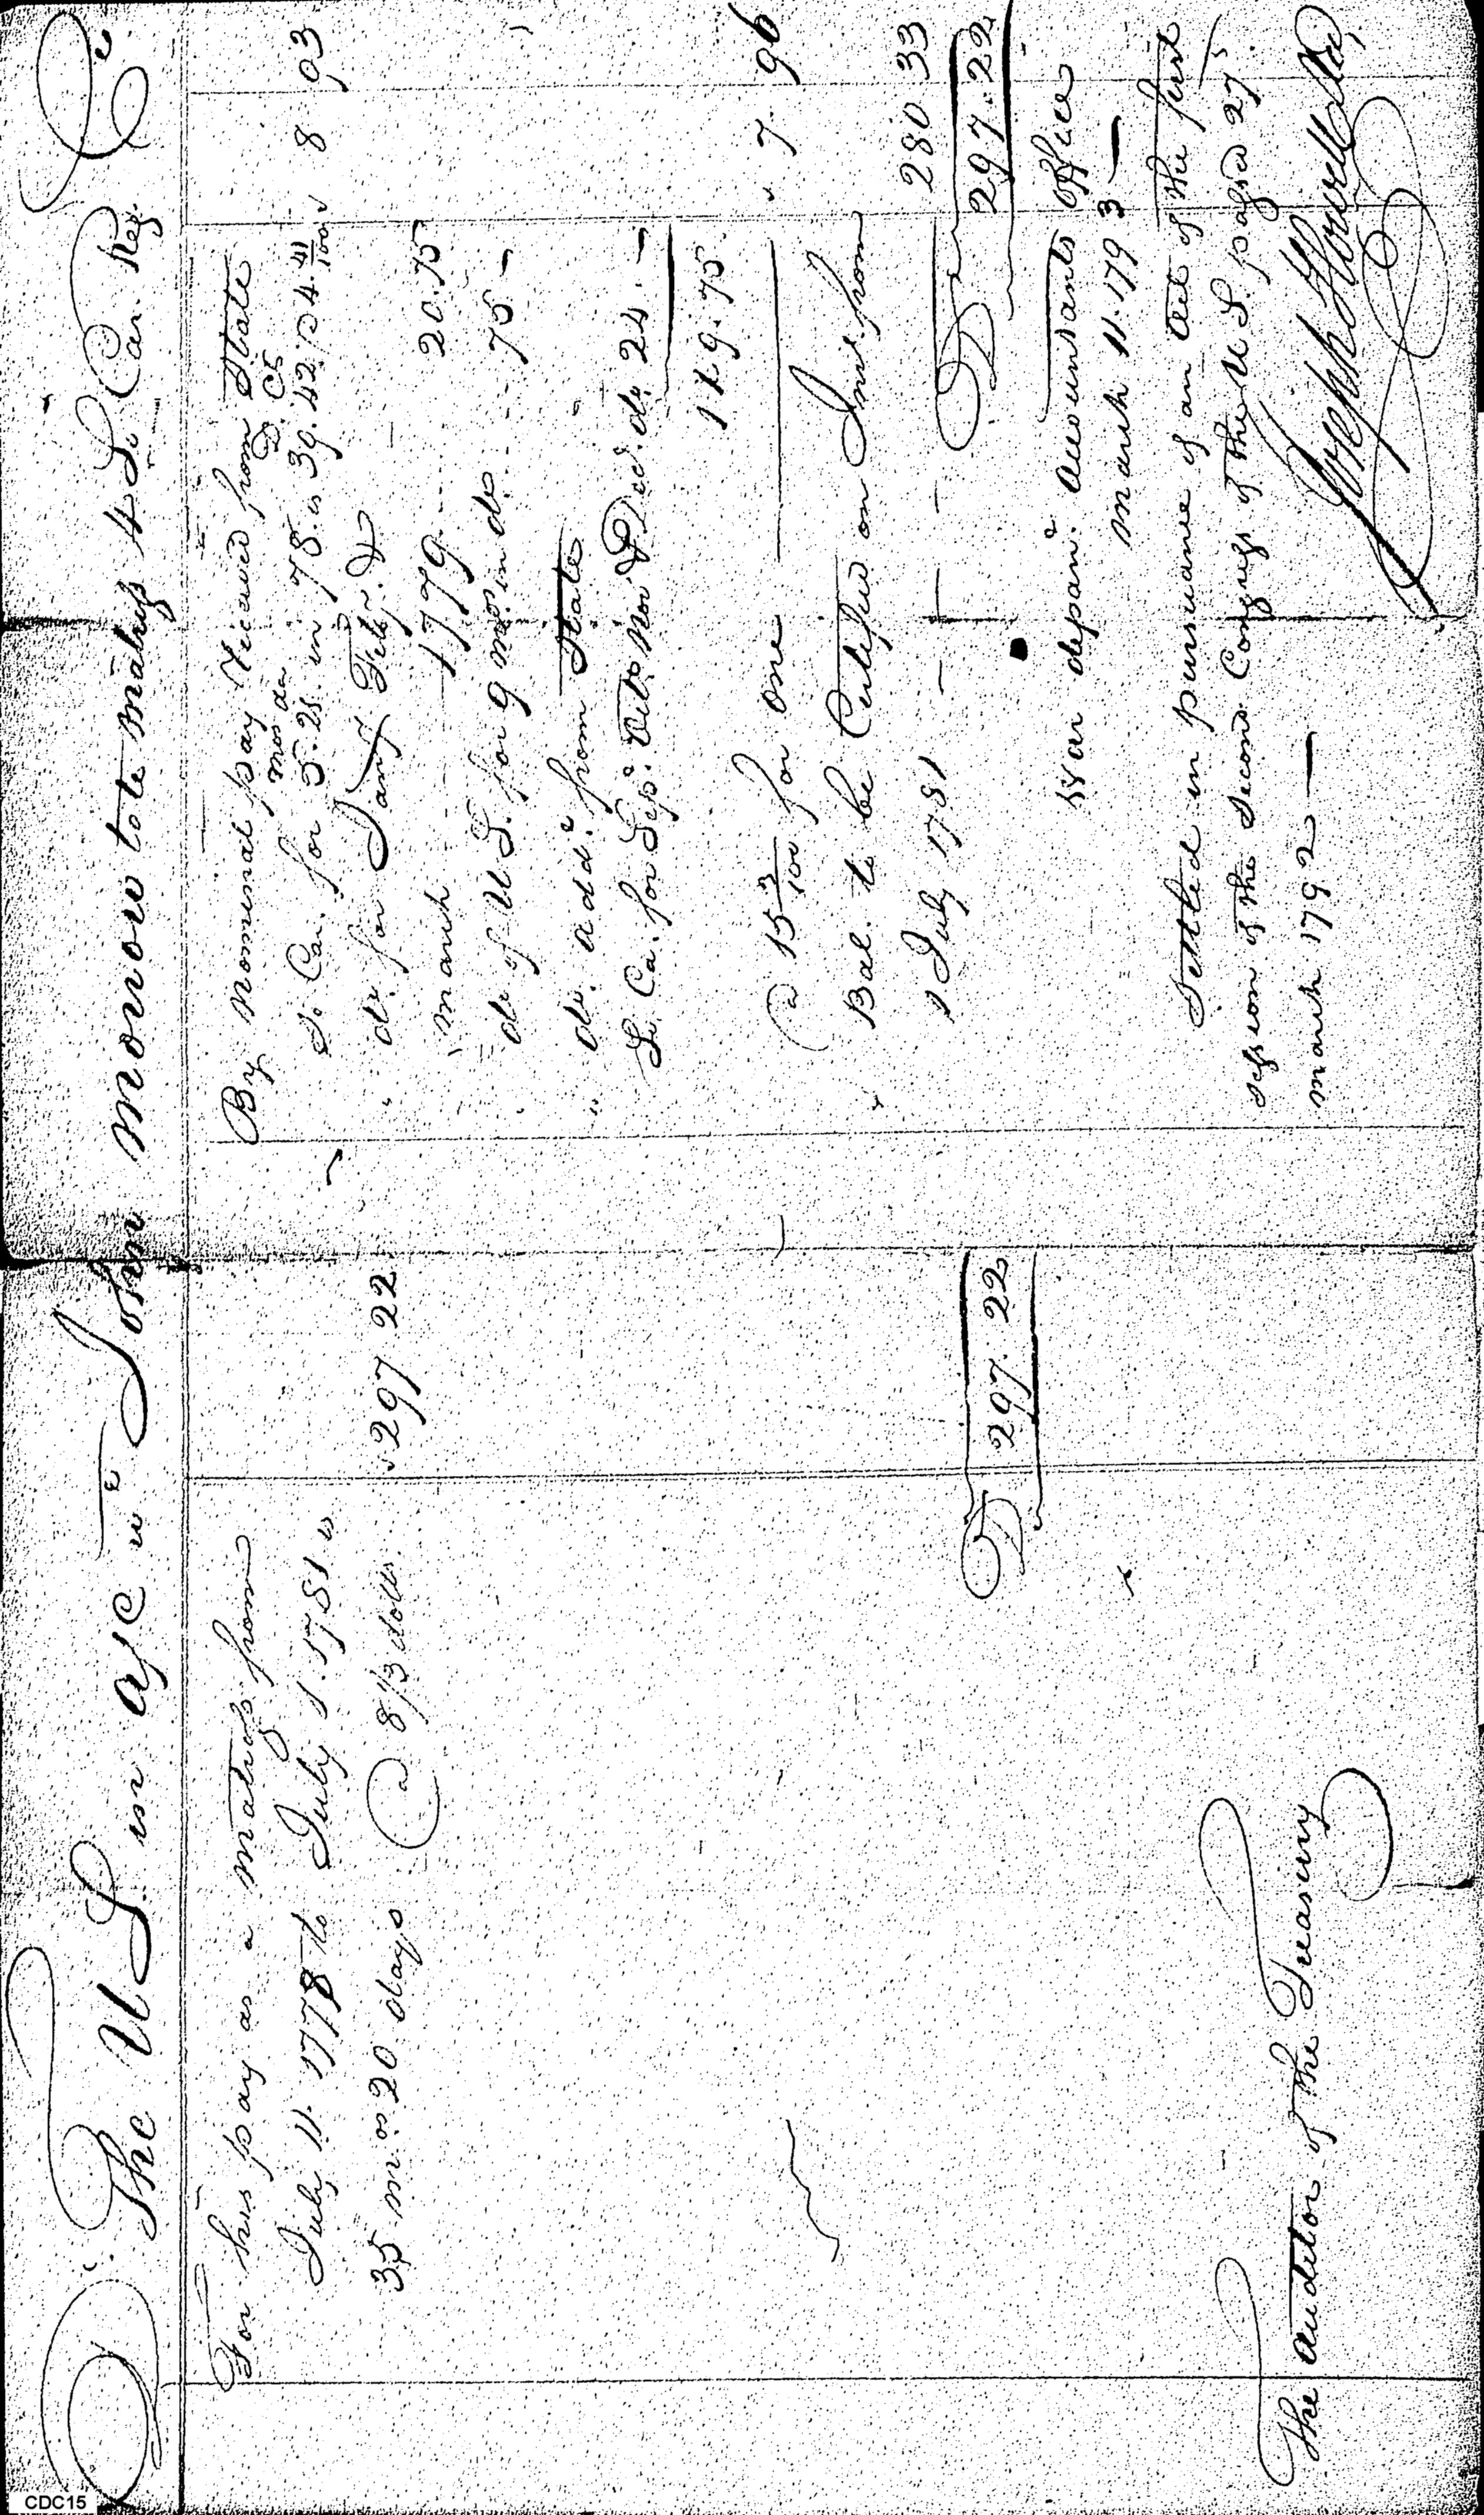 Dr The U S in a/c wth John Monow late matross 4 So Car. Reg. Cr
For his pay as a matross from
July 11. 1778 to July 1. 1781 is
35 mos 20 days @ 8 1/3 dolls. 297 22
D 297. 22
The Auditor of the Treasury
By Nominal pay received from State
mos da D. Cts
So Car. for 5. 25. in 78. is 39. 42. @ 4. 41/100 8 93
" do for Jany Feby. &
March 1779 20.75
do of U S. for 9 mos in do 75 -
" do. addl. from State
So. Ca. for Sepr. Octo Nov & Decr do 24. -
119. 75.
@ 15 3/100 for one 7. 96
Bal. to be Certified on Int. from
1 July 1781 280 33
D 297. 22
War departt. Accountants office
March 11. 1793
Settled in pursuance of an Act of the first
session of the Second Congress of the U S. passed 27
March 1792
Joseph Howell
CDC15